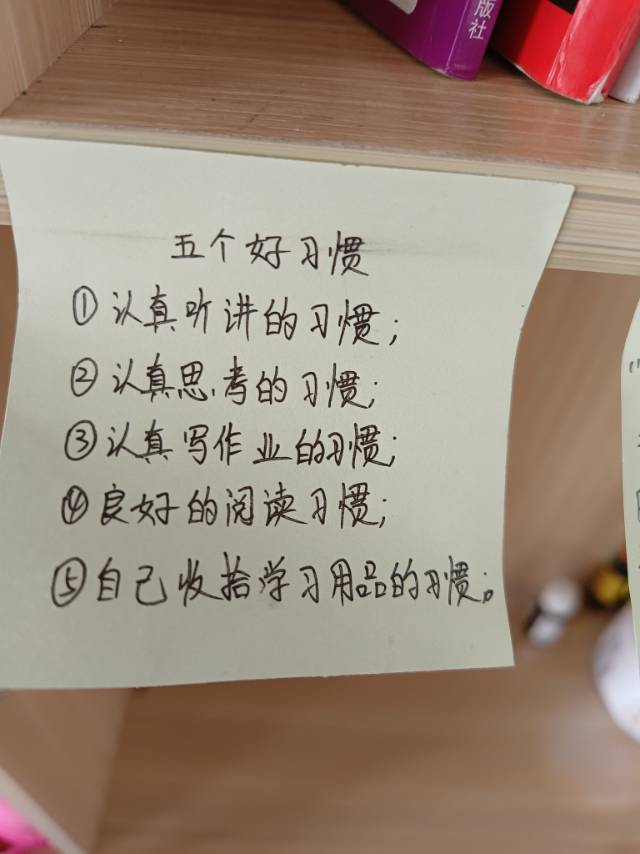 版社
五个好习惯
①认真听讲的习惯;
②认真思考的习惯;
③认真写作业的习惯;
④良好的阅读习惯;
⑤自己收拾学习用品的习惯;